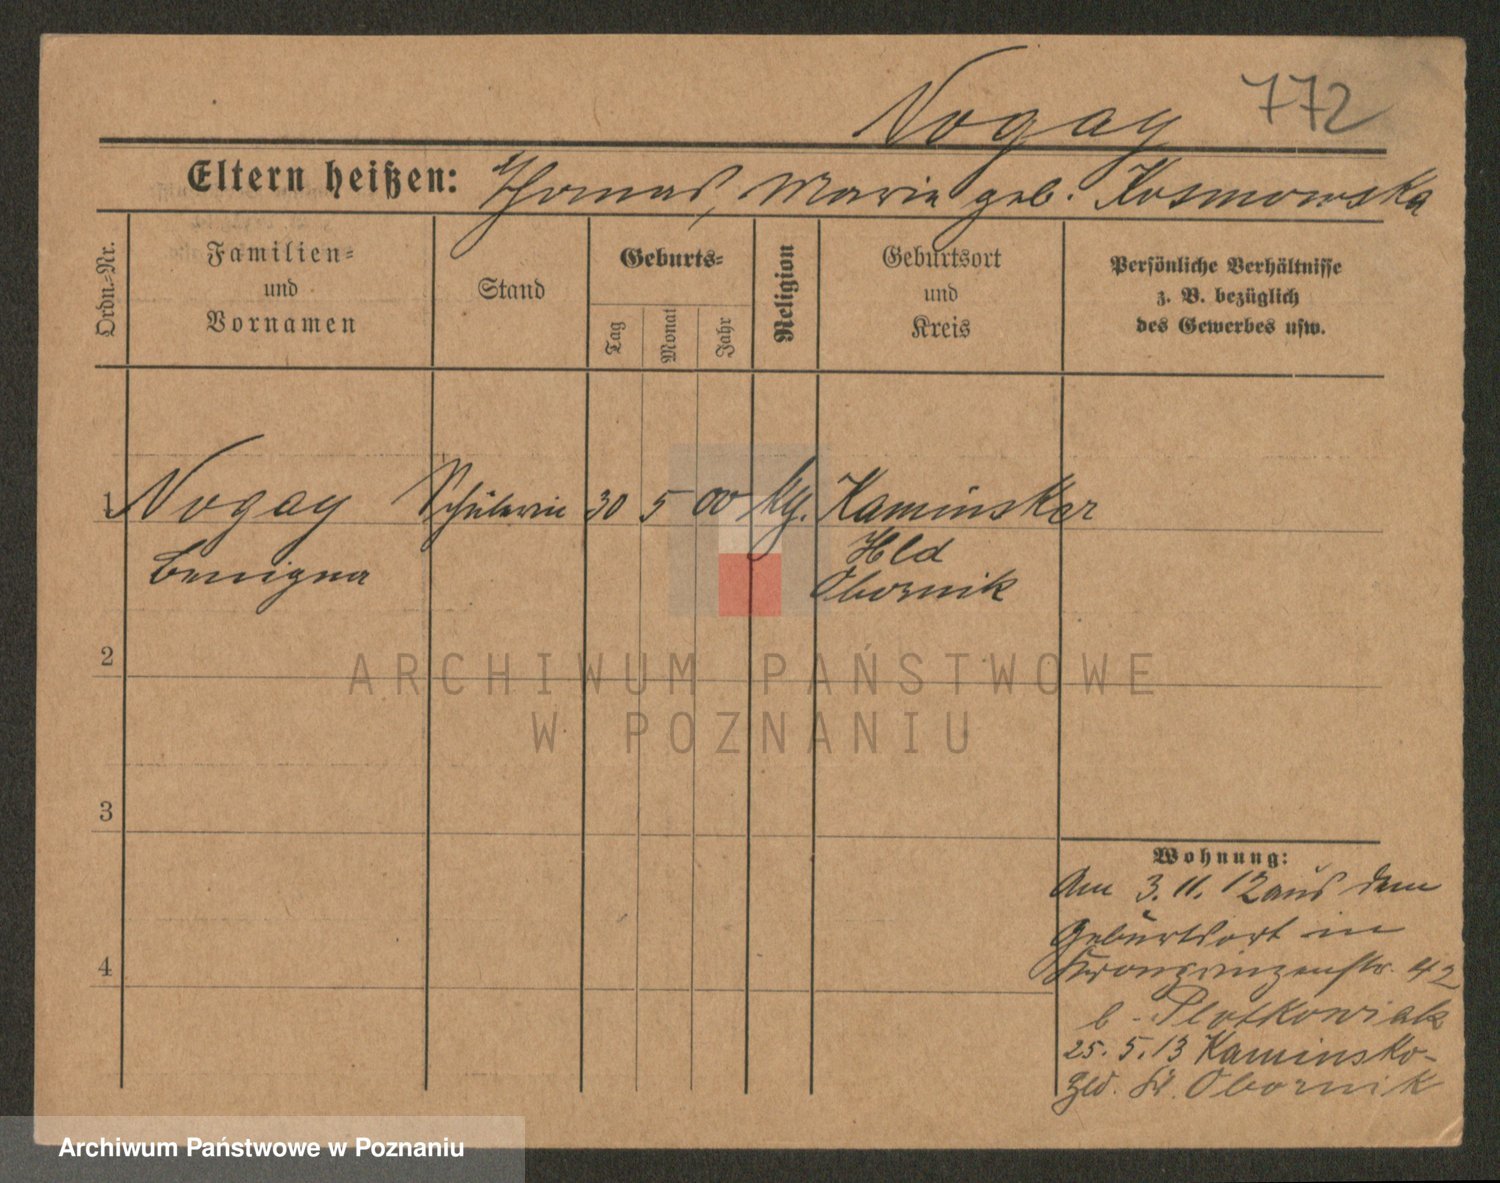 Nogay 772
Eltern heißen: Thomas, Marie geb. Kosmowska
Ordn.-Nr.
Familien-
und
Vornamen
Stand
Geburts-
Tag
Monat
Jahr
Religion
Geburtsort
und
Kreis
Persönliche Verhältnisse
z. B. bezüglich
des Gewerbes usw.
1 Nogay Schülerin 30 5 00 kth. Kaminsker
Benigna Hld
Obornik
2
3
4
Wohnung:
Am 3. 11. 12 aus dem
Geburtsort in
Kronprinzenstr. 42
b. Plotkowiak
25. 5. 13 Kaminsko-
Hld. Kr. Obornik
ARCHIWUM PAŃSTWOWE
W POZNANIU
Archiwum Państwowe w Poznaniu